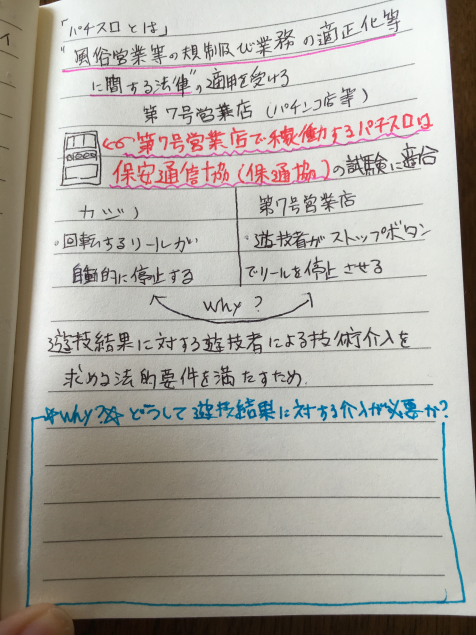 「パチスロとは」
"風俗営業等の規制及び業務の適正化等
に関する法律"の適用を受ける
第7号営業店（パチンコ店等）
第7号営業店で稼働するパチスロは
保安通信協（保通協）の試験に適合
カジノ
・回転するリールが
自動的に停止する
第7号営業店
・遊技者がストップボタン
でリールを停止させる
why?
遊技結果に対する遊技者による技術介入を
求める法的要件を満たすため.
☆why?☆ どうして遊技結果に対する介入が必要か?